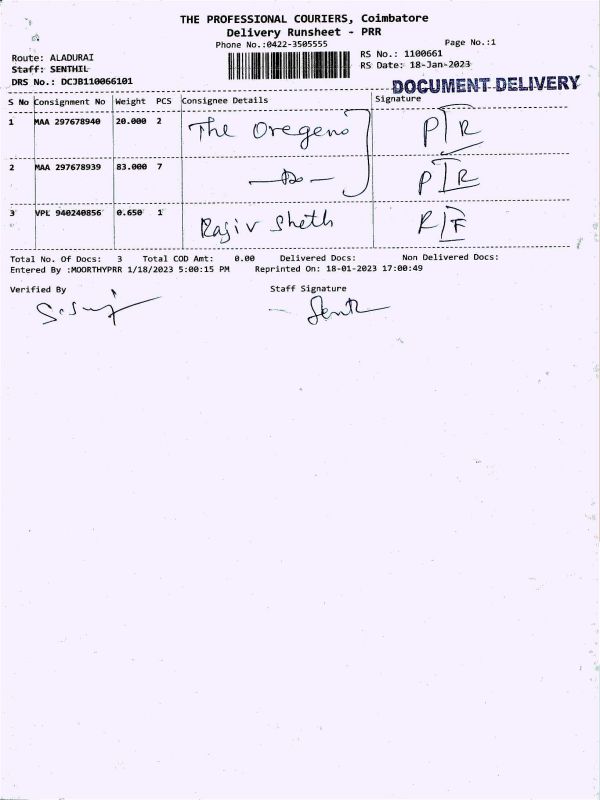 THE PROFESSIONAL COURIERS, Coimbatore
Delivery Runsheet - PRR
Phone No.:0422-3505555
Page No.:1
Route: ALADURAI
RS No.: 1100661
Staff: SENTHIL
RS Date: 18-Jan-2023
DRS No.: DCJB110066101
DOCUMENT DELIVERY
S No Consignment No Weight PCS Consignee Details Signature
1 MAA 297678940 20.000 2 The Oregeno P/R
2 MAA 297678939 83.000 7 —Do— P/R
3 VPL 940240856 0.650 1 Rajiv Sheth R/F
Total No. Of Docs: 3 Total COD Amt: 0.00 Delivered Docs: Non Delivered Docs:
Entered By :MOORTHYPRR 1/18/2023 5:00:15 PM Reprinted On: 18-01-2023 17:00:49
Verified By Staff Signature